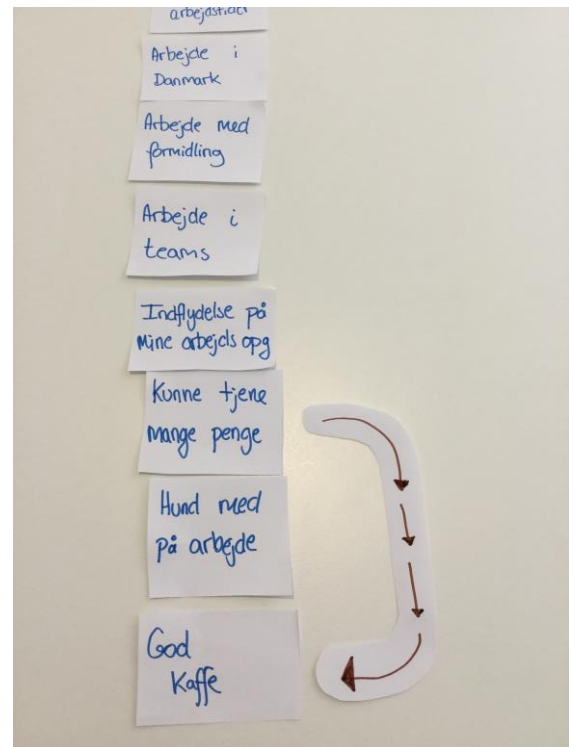 Arbejde i
Danmark
Arbejde med
formidling
Arbejde i
teams
Indflydelse på
Mine arbejds opg
Kunne tjene
mange penge
Hund med
på arbejde
God
Kaffe